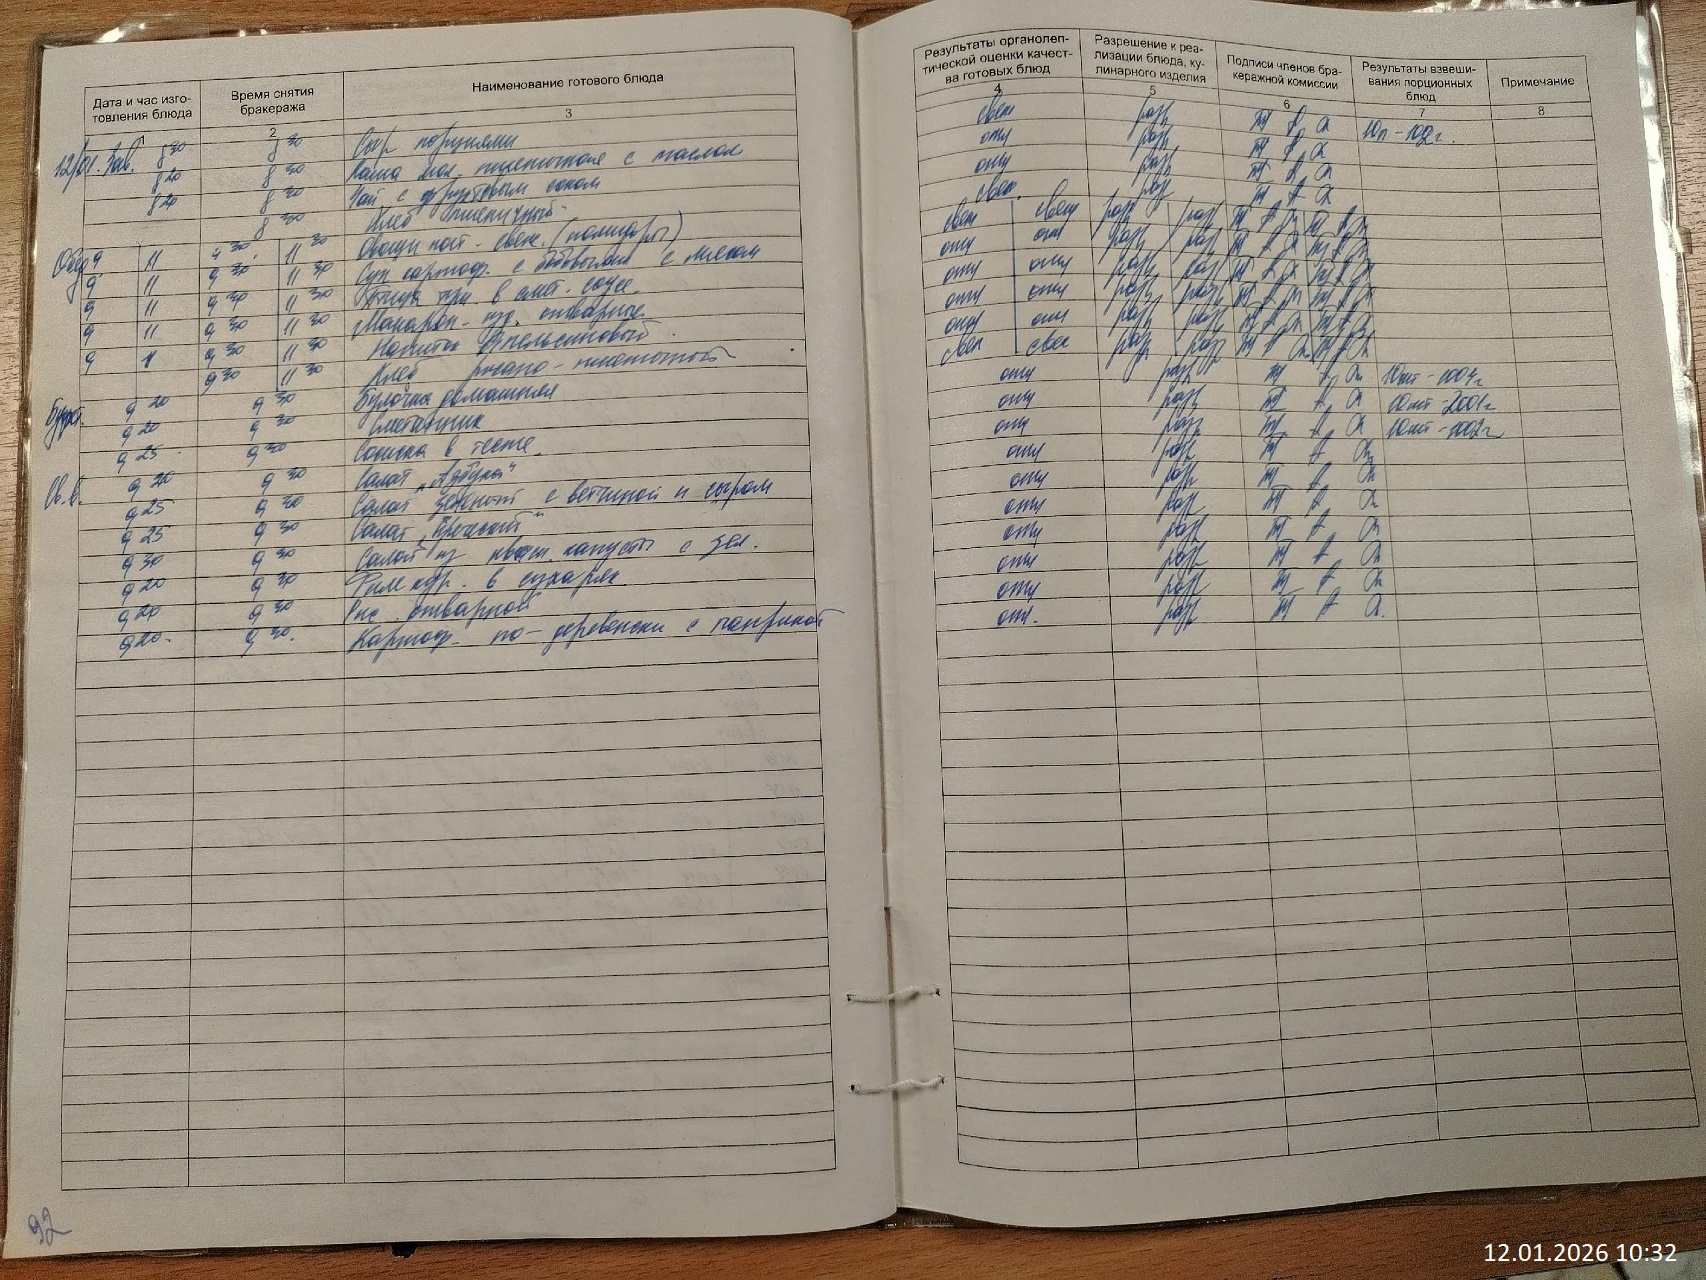 Дата и час изго-
товления блюда
Время снятия
бракеража
Наименование готового блюда
1 2 3
12/01. Зав. 8 20 8 30 Сыр порциями
8 20 8 30 Каша мол. пшеничная с маслом
8 20 8 30 Чай с фруктовым соком
8 30 Хлеб пшеничный
Обед 9 11 9 30 11 30 Овощи нат. свеж. (помидоры)
9 11 9 30 11 30 Суп картоф. с бобовыми с мясом
9 11 9 30 11 30 Птица туш. в смет. соусе.
9 11 9 30 11 30 Макарон. изд. отварные
9 11 9 30 11 30 Напиток апельсиновый
9 30 11 30 Хлеб ржано-пшеничный
Буфет. 9 20 9 30 Булочка домашняя
9 20 9 30 Сметанник
9 25 9 30 Сосиска в тесте
Св. в. 9 20 9 30 Салат „Азбука"
9 25 9 30 Салат зеленый с ветчиной и сыром
9 25 9 30 Салат „Греческий"
9 30 9 30 Салат из кваш. капусты с зел.
9 20 9 30 Филе кур. в сухарях
9 20 9 30 Рис отварной
9 20 9 30. Картоф. по-деревенски с паприкой
92
Результаты органолеп-
тической оценки качест-
ва готовых блюд
Разрешение к реа-
лизации блюда, ку-
линарного изделия
Подписи членов бра-
керажной комиссии
Результаты взвеши-
вания порционных
блюд
Примечание
4 5 6 7 8
свеж разр 10п - 102г.
отл разр
отл разр
свеж. разр
свеж свеж разр разр
отл отл разр разр
отл отл разр разр
отл отл разр разр
отл отл разр разр
свеж свеж разр разр
отл разр 10шт - 1004г
отл разр 10шт - 2001г
отл разр 10шт - 1002г
отл разр
отл разр
отл разр
отл разр
отл разр
отл разр
отл. разр
12.01.2026 10:32